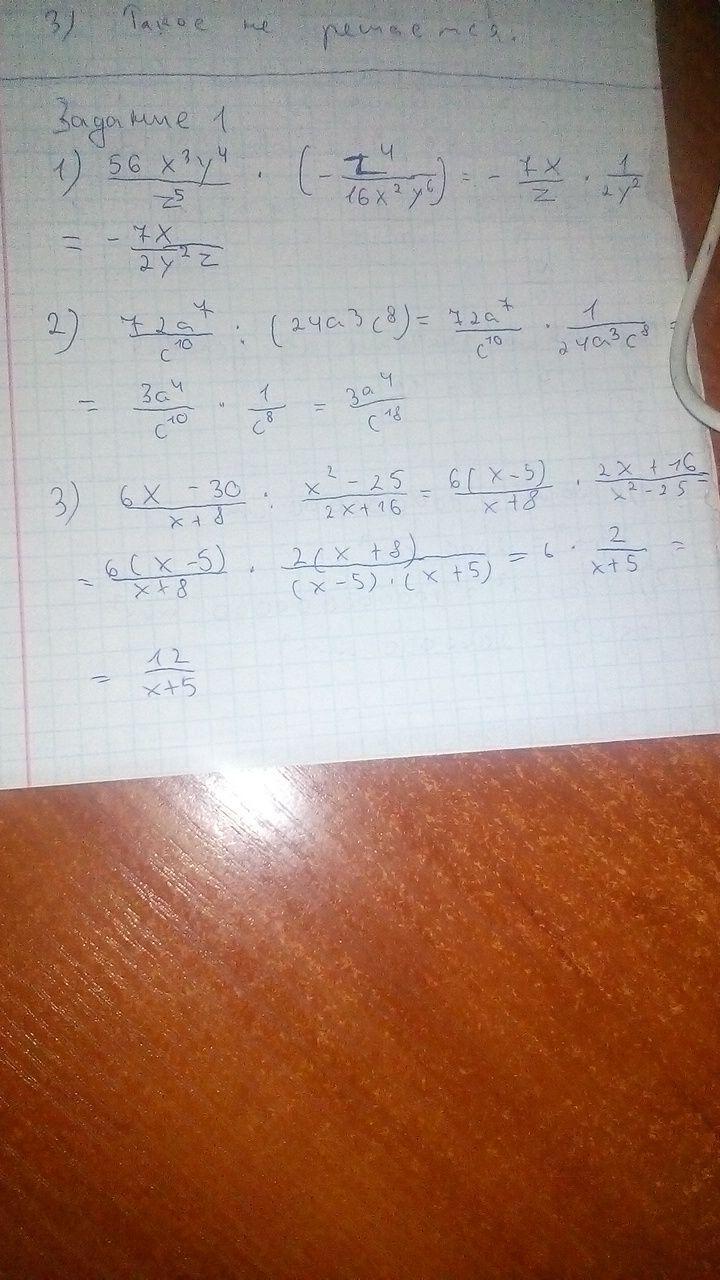 3) Такое не решается.
Задание 1
1) 56 x³y⁴/z⁵ · (- z⁴/16x²y⁶) = - 7x/z · 1/2y²
= - 7x/2y²z
2) 72a⁷/c¹⁰ : (24a³c⁸) = 72a⁷/c¹⁰ · 1/24a³c⁸ =
= 3a⁴/c¹⁰ · 1/c⁸ = 3a⁴/c¹⁸
3) 6x - 30/x+8 : x² - 25/2x+16 = 6(x-5)/x+8 · 2x + 16/x² - 25 =
= 6(x-5)/x+8 · 2(x+8)/(x-5)·(x+5) = 6 · 2/x+5 =
= 12/x+5